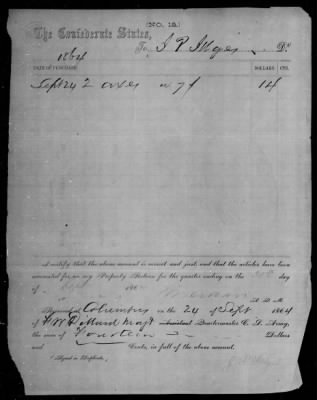 (NO. 12.)
The Confederate States,
To J P Illges, Dr.
1864
DATE OF PURCHASE. DOLLARS. CTS.
Sept 24 2 axes a 7$ 14
I certify that the above account is correct and just; and that the articles have been
accounted for on my Property Return for the quarter ending on the 30th day
of Sept 186
Received at Columbus on the 24 of Sept 1864
of Majr Quartermaster C. S. Army,
the sum of Fourteen Dollars
and Cents, in full of the above account.
(Signed in Duplicate.)